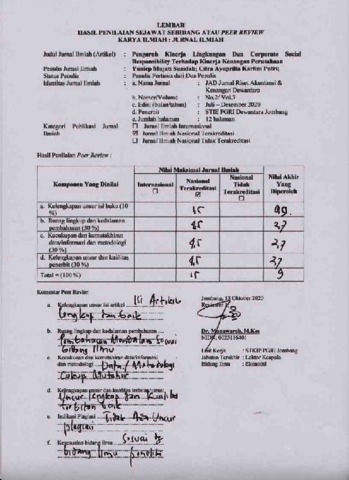 LEMBAR
HASIL PENILAIAN SEJAWAT SEBIDANG ATAU PEER REVIEW
KARYA ILMIAH : JURNAL ILMIAH
Judul Jurnal Ilmiah (Artikel) : Pengaruh Kinerja Lingkungan Dan Corporate Social
Responsibility Terhadap Kinerja Keuangan Perusahaan
Penulis Jurnal Ilmiah : Yuniep Mujati Suaidah; Citra Ayuprilia Kartini Putri;
Status Penulis : Penulis Pertama dari Dua Penulis
Identitas Jurnal Ilmiah : a. Nama Jurnal : JAD Jurnal Riset Akuntansi &
Keuangan Dewantara
b. Nomor/Volume : No.2/ Vol.3
c. Edisi (bulan/tahun) : Juli – Desember 2020
d. Penerbit : STIE PGRI Dewantara Jombang
e. Jumlah halaman : 12 halaman
Kategori Publikasi Jurnal Ilmiah : ☐ Jurnal Ilmiah Internasional
☑ Jurnal Ilmiah Nasional Terakreditasi
☐ Jurnal Ilmiah Nasional Tidak Terakreditasi
Hasil Penilaian Peer Review :
Komponen Yang Dinilai
Nilai Maksimal Jurnal Ilmiah
Internasional ☐
Nasional Terakreditasi ☑
Nasional Tidak Terakreditasi ☐
Nilai Akhir Yang Diperoleh
a. Kelengkapan unsur isi buku (10 %)
b. Ruang lingkup dan kedalaman pembahasan (30 %) 4,5 2,7
c. Kecukupan dan kemutakhiran data/informasi dan metodologi (30 %) 4,5 2,7
d. Kelengkapan unsur dan kualitas penerbit (30 %) 4,5 2,7
Total = (100 %) 15 9
Komentar Peer Review
a. Kelengkapan unsur isi artikel Isi Artikel
lengkap dan baik
b. Ruang lingkup dan kedalaman pembahasan
Pembahasan Mendalam sesuai
bidang ilmu
c. Kecukupan dan kemutakhiran data/informasi
dan metodologi Data / Metodologi
cukup Mutahir
d. Kelengkapan unsur dan kualitas terbitan
Unsur lengkap dan kualitas
terbitan baik
e. Indikasi Plagiasi Tidak Ada Unsur
plagiasi
f. Kesesuaian bidang ilmu Sesuai dg
bidang ilmu penulis
Jombang, Oktober 2023
Reviewer
Dr. Munawaroh, M.Kes
Unit Kerja : STKIP PGRI Jombang
Jabatan Terakhir : Lektor Kepala
Bidang Ilmu : Ekonomi